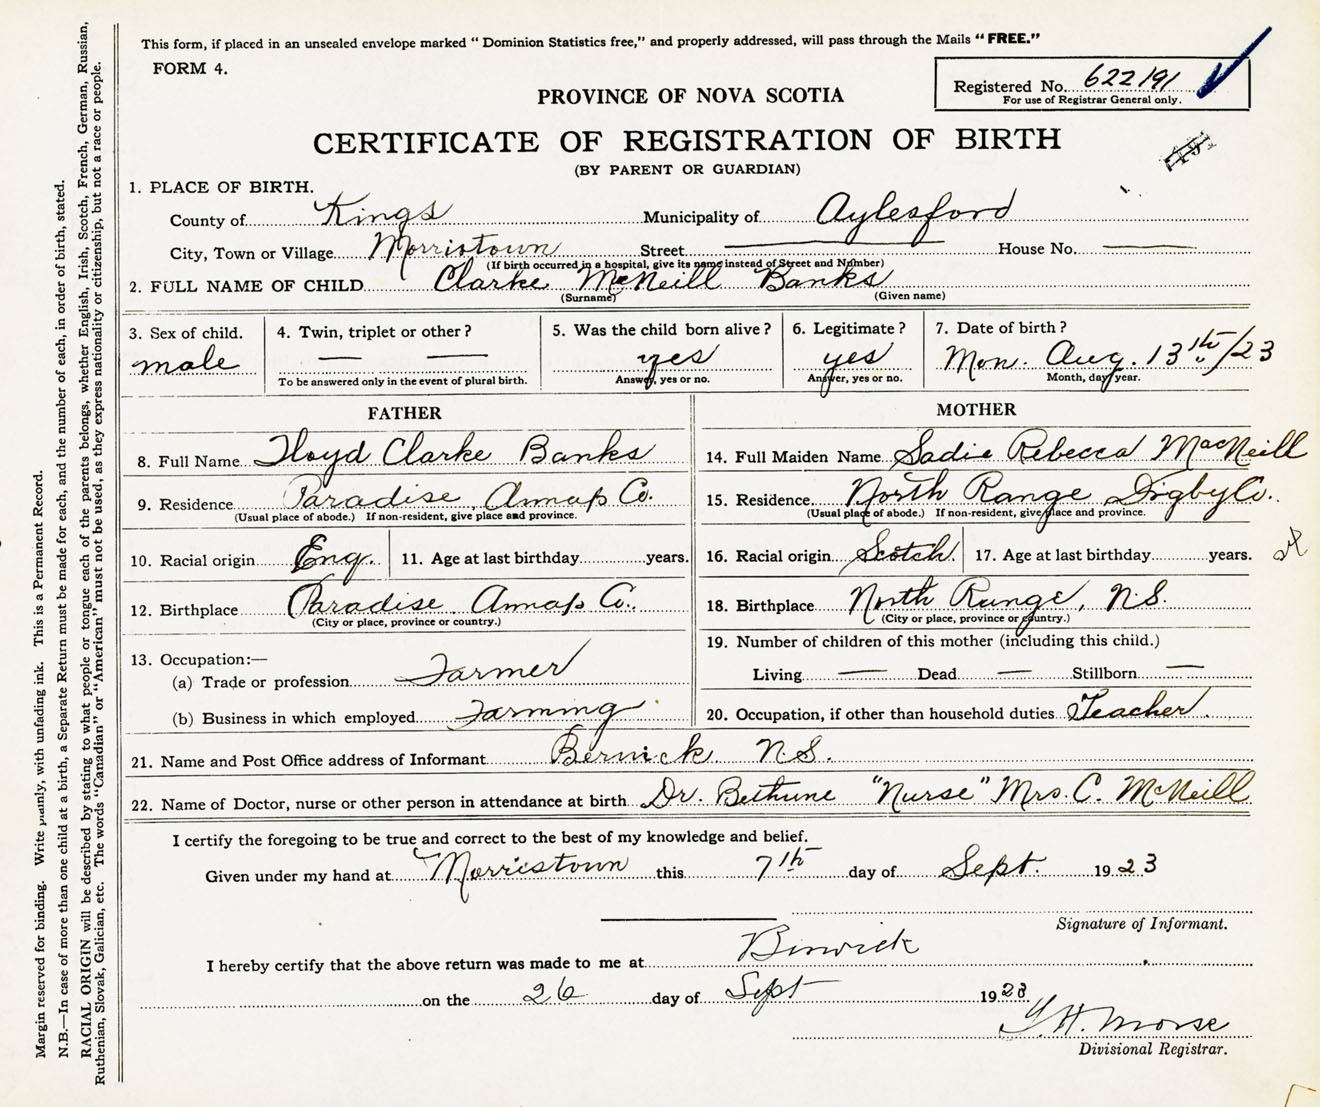 This form, if placed in an unsealed envelope marked "Dominion Statistics free," and properly addressed, will pass through the Mails "FREE."
FORM 4.
Registered No. 622191
For use of Registrar General only.
PROVINCE OF NOVA SCOTIA
CERTIFICATE OF REGISTRATION OF BIRTH
(BY PARENT OR GUARDIAN)
1. PLACE OF BIRTH.
County of Kings Municipality of Aylesford
City, Town or Village Morristown Street House No.
(If birth occurred in a hospital, give its name instead of Street and Number)
2. FULL NAME OF CHILD Clarke McNeill Banks
(Surname) (Given name)
3. Sex of child. 4. Twin, triplet or other? 5. Was the child born alive? 6. Legitimate? 7. Date of birth?
male — — yes yes Mon. Aug. 13th/23
To be answered only in the event of plural birth. Answer, yes or no. Answer, yes or no. Month, day year.
FATHER MOTHER
8. Full Name Floyd Clarke Banks
14. Full Maiden Name Sadie Rebecca MacNeill
9. Residence Paradise, Annap Co.
(Usual place of abode.) If non-resident, give place and province.
15. Residence North Range Digby Co.
(Usual place of abode.) If non-resident, give place and province.
10. Racial origin Eng. 11. Age at last birthday years.
16. Racial origin Scotch 17. Age at last birthday years.
12. Birthplace Paradise, Annap Co.
(City or place, province or country.)
18. Birthplace North Range, N.S.
(City or place, province or country.)
13. Occupation:—
(a) Trade or profession Farmer
(b) Business in which employed Farming
19. Number of children of this mother (including this child.)
Living — Dead — Stillborn —
20. Occupation, if other than household duties Teacher.
21. Name and Post Office address of Informant Berwick N.S.
22. Name of Doctor, nurse or other person in attendance at birth Dr. Bethune "Nurse" Mrs. C. McNeill
I certify the foregoing to be true and correct to the best of my knowledge and belief.
Given under my hand at Morristown this 7th day of Sept. 1923
Signature of Informant.
I hereby certify that the above return was made to me at Berwick
on the 26 day of Sept 1923
Morse
Divisional Registrar.
Margin reserved for binding. Write plainly, with unfading ink. This is a Permanent Record.
N.B.—In case of more than one child at a birth, a Separate Return must be made for each, and the number of each, in order of birth, stated.
RACIAL ORIGIN will be described by stating to what people or tongue each of the parents belongs, whether English, Irish, Scotch, French, German, Russian,
Ruthenian, Slovak, Galician, etc. The words "Canadian" or "American" must not be used, as they express nationality or citizenship, but not a race or people.